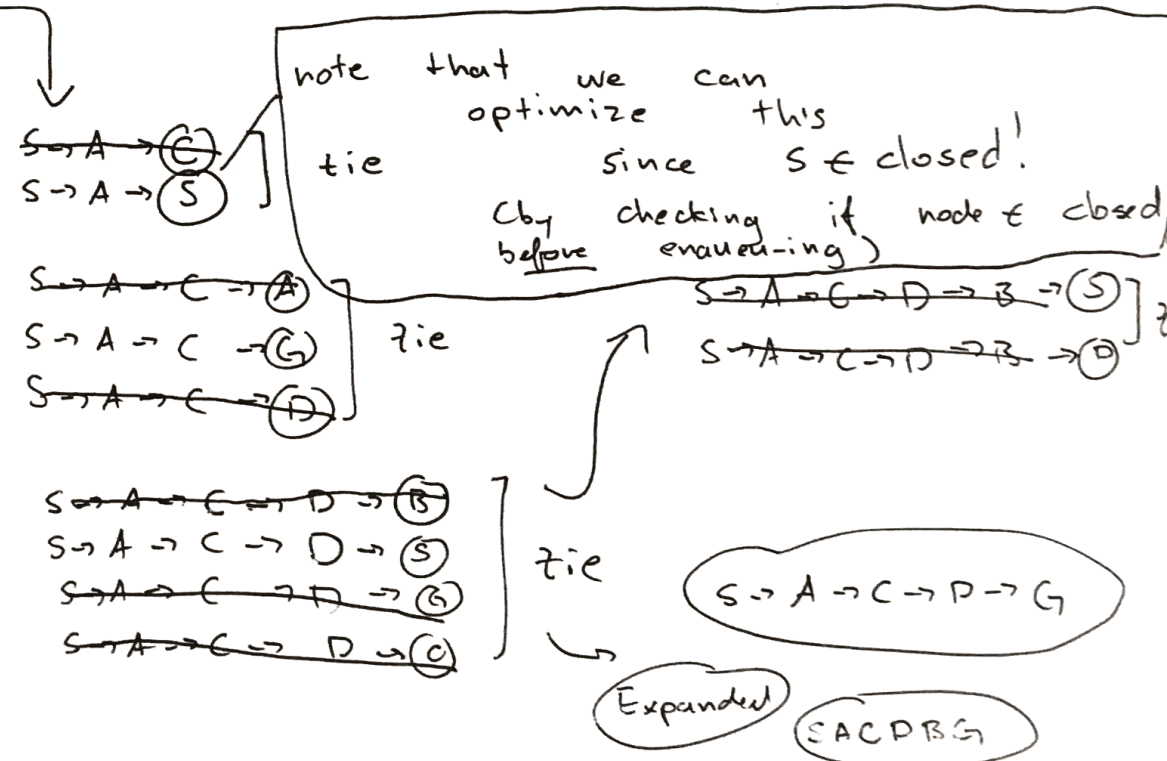 note that we can
optimize this
since S ∈ closed!
(by checking if node ∈ closed
before enqueu-ing)
S → A → C
S → A → S
tie
S → A → C → A
S → A → C → G
S → A → C → D
tie
S → A → C → D → B
S → A → C → D → S
S → A → C → D → G
S → A → C → D → C
tie
S → A → C → D → B → S
S → A → C → D → B → D
S → A → C → D → G
Expanded
SACDBG